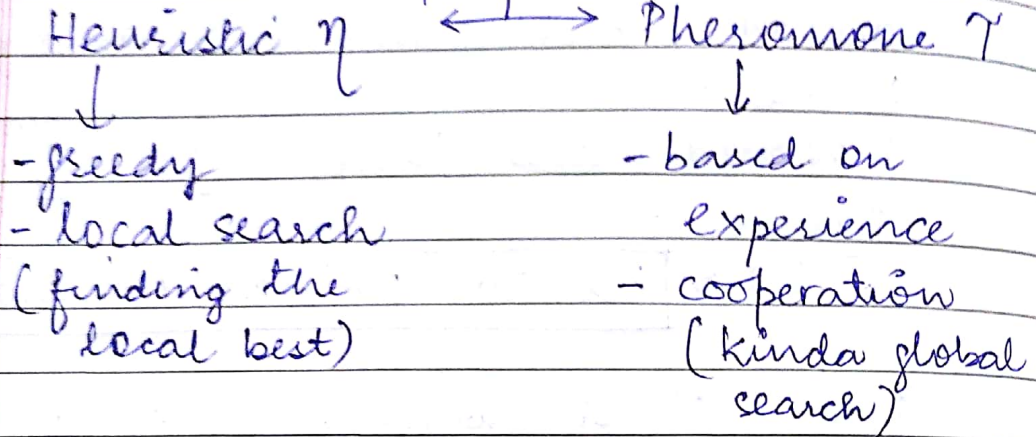 Heuristic η ↔ Pheromone τ
↓ ↓
- greedy
- local search
(finding the
local best)
- based on
experience
- cooperation
(kinda global
search)